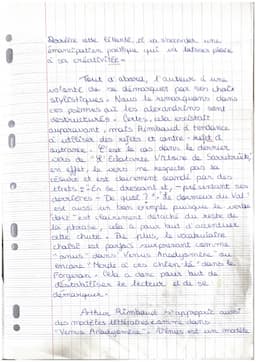 Derrière cette liberté, il va s'accorder une
émancipation poétique qui va laisser place
à sa créativité.
Tout d'abord, l'auteur a une
volonté de se démarquer par ses choix
stylistiques. Nous le remarquons dans
ces poèmes où les alexandrins sont
destructurés. Certes, cela existait
auparavant, mais Rimbaud a tendance
à utiliser des rejets et contre-rejet à
outrance. C'est le cas dans le dernier
vers de "L'Eclatante Victoire de Sarrebrück",
en effet, le vers ne respecte pas la
césure et est clairement scandé par des
tirets : "En se dressant et, - présentant ses
derrières - De quoi ?". "Le dormeur du Val"
est aussi un bon exemple puisque le verbe
"dort" est clairement détaché du reste de
la phrase, cela a pour but d'accentuer
cette chute. De plus, le vocabulaire
choisi est parfois surprenant comme
"anus" dans Venus Anadyomène ou
encore "Merde à ces chiens-là" dans Le
Forgeron. Cela a donc pour but de
déstabiliser le lecteur et de se
démarquer.
Arthur Rimbaud réapproprie aussi
des modèles littéraires comme dans
"Venus Anadyomène". Vénus est un modèle